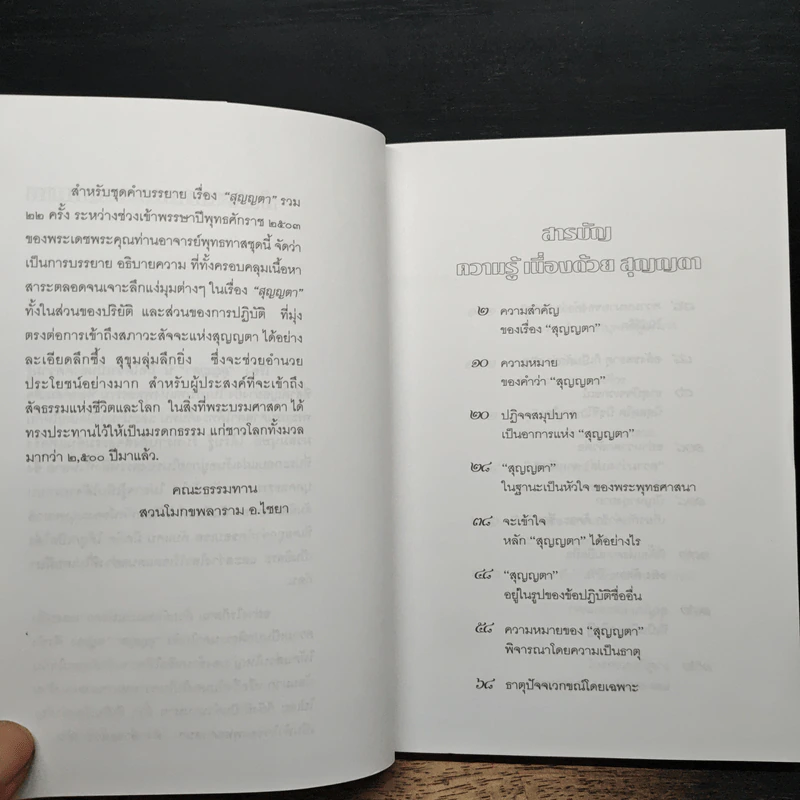 สำหรับชุดคำบรรยาย เรื่อง “สุญญตา” รวม
๒๒ ครั้ง ระหว่างช่วงเข้าพรรษาปีพุทธศักราช ๒๕๐๓
ของพระเดชพระคุณท่านอาจารย์พุทธทาสชุดนี้ จัดว่า
เป็นการบรรยาย อธิบายความ ที่ทั้งครอบคลุมเนื้อหา
สาระตลอดจนเจาะลึกแง่มุมต่างๆ ในเรื่อง “สุญญตา”
ทั้งในส่วนของปริยัติ และส่วนของการปฏิบัติ ที่มุ่ง
ตรงต่อการเข้าถึงสภาวะสัจจะแห่งสุญญตา ได้อย่าง
ละเอียดลึกซึ้ง สุขุมลุ่มลึกยิ่ง ซึ่งจะช่วยอำนวย
ประโยชน์อย่างมาก สำหรับผู้ประสงค์ที่จะเข้าถึง
สัจธรรมแห่งชีวิตและโลก ในสิ่งที่พระบรมศาสดา ได้
ทรงประทานไว้ให้เป็นมรดกธรรม แก่ชาวโลกทั้งมวล
มากว่า ๒,๕๐๐ ปีมาแล้ว.
คณะธรรมทาน
สวนโมกขพลาราม อ.ไชยา
สารบัญ
ความรู้ เนื่องด้วย สุญญตา
๒ ความสำคัญ
ของเรื่อง “สุญญตา”
๑๐ ความหมาย
ของคำว่า “สุญญตา”
๒๐ ปฏิจจสมุปบาท
เป็นอาการแห่ง “สุญญตา”
๒๘ “สุญญตา”
ในฐานะเป็นหัวใจ ของพระพุทธศาสนา
๓๘ จะเข้าใจ
หลัก “สุญญตา” ได้อย่างไร
๔๘ “สุญญตา”
อยู่ในรูปของข้อปฏิบัติชื่ออื่น
๕๘ ความหมายของ “สุญญตา”
พิจารณาโดยความเป็นธาตุ
๖๘ ธาตุปัจจเวกขณ์โดยเฉพาะ